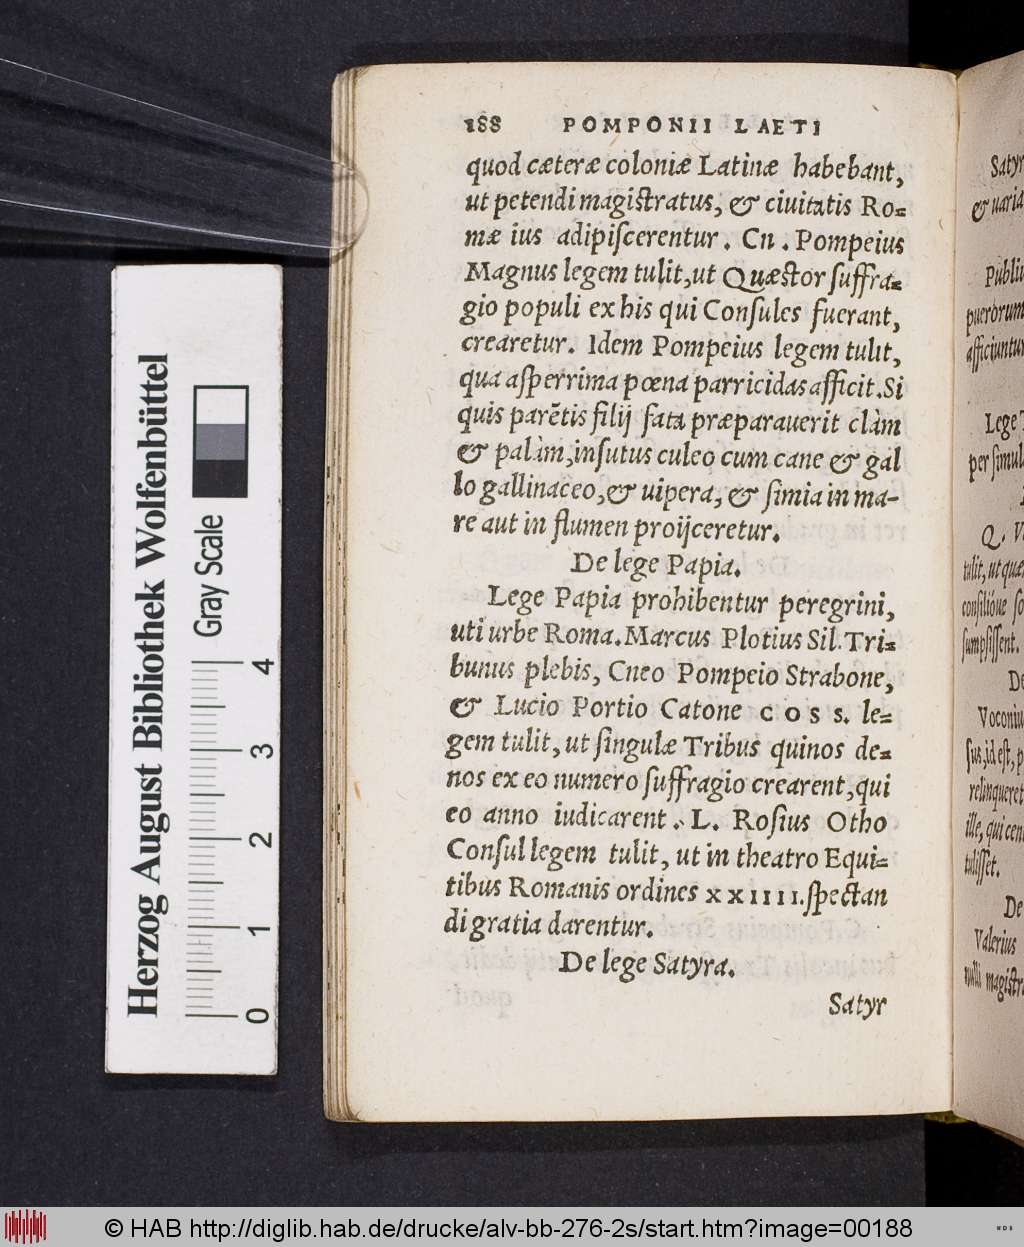 188 POMPONII LAETI
quod cæteræ coloniæ Latinæ habebant,
ut petendi magistratus, & ciuitatis Ro=
mæ ius adipiscerentur. Cn. Pompeius
Magnus legem tulit, ut Quæstor suffra=
gio populi ex his qui Consules fuerant,
crearetur. Idem Pompeius legem tulit,
qua asperrima pœna parricidas afficit. Si
quis parẽtis filij fata præparauerit clàm
& palàm, insutus culeo cum cane & gal
lo gallinaceo, & uipera, & simia in ma-
re aut in flumen proijceretur.
De lege Papia.
Lege Papia prohibentur peregrini,
uti urbe Roma. Marcus Plotius Sil. Tri=
bunus plebis, Cneo Pompeio Strabone,
& Lucio Portio Catone COSS. le=
gem tulit, ut singulæ Tribus quinos de=
nos ex eo numero suffragio crearent, qui
eo anno iudicarent. L. Rosius Otho
Consul legem tulit, ut in theatro Equi=
tibus Romanis ordines XXIIII. spectan
di gratia darentur.
De lege Satyra.
Satyr
Satyr
& uaria
Publiu
puerorum
afficiuntur
Lege T
per simul
Q. V
tulit, ut quæ
consilióue so
sumpsissent.
De
Voconiu
sus, id est, p
relinqueret
ille, qui cen
tulisset.
De
Valerius
nulli magistra
Herzog August Bibliothek Wolfenbüttel
Gray Scale
0 1 2 3 4
© HAB http://diglib.hab.de/drucke/alv-bb-276-2s/start.htm?image=00188
WDB